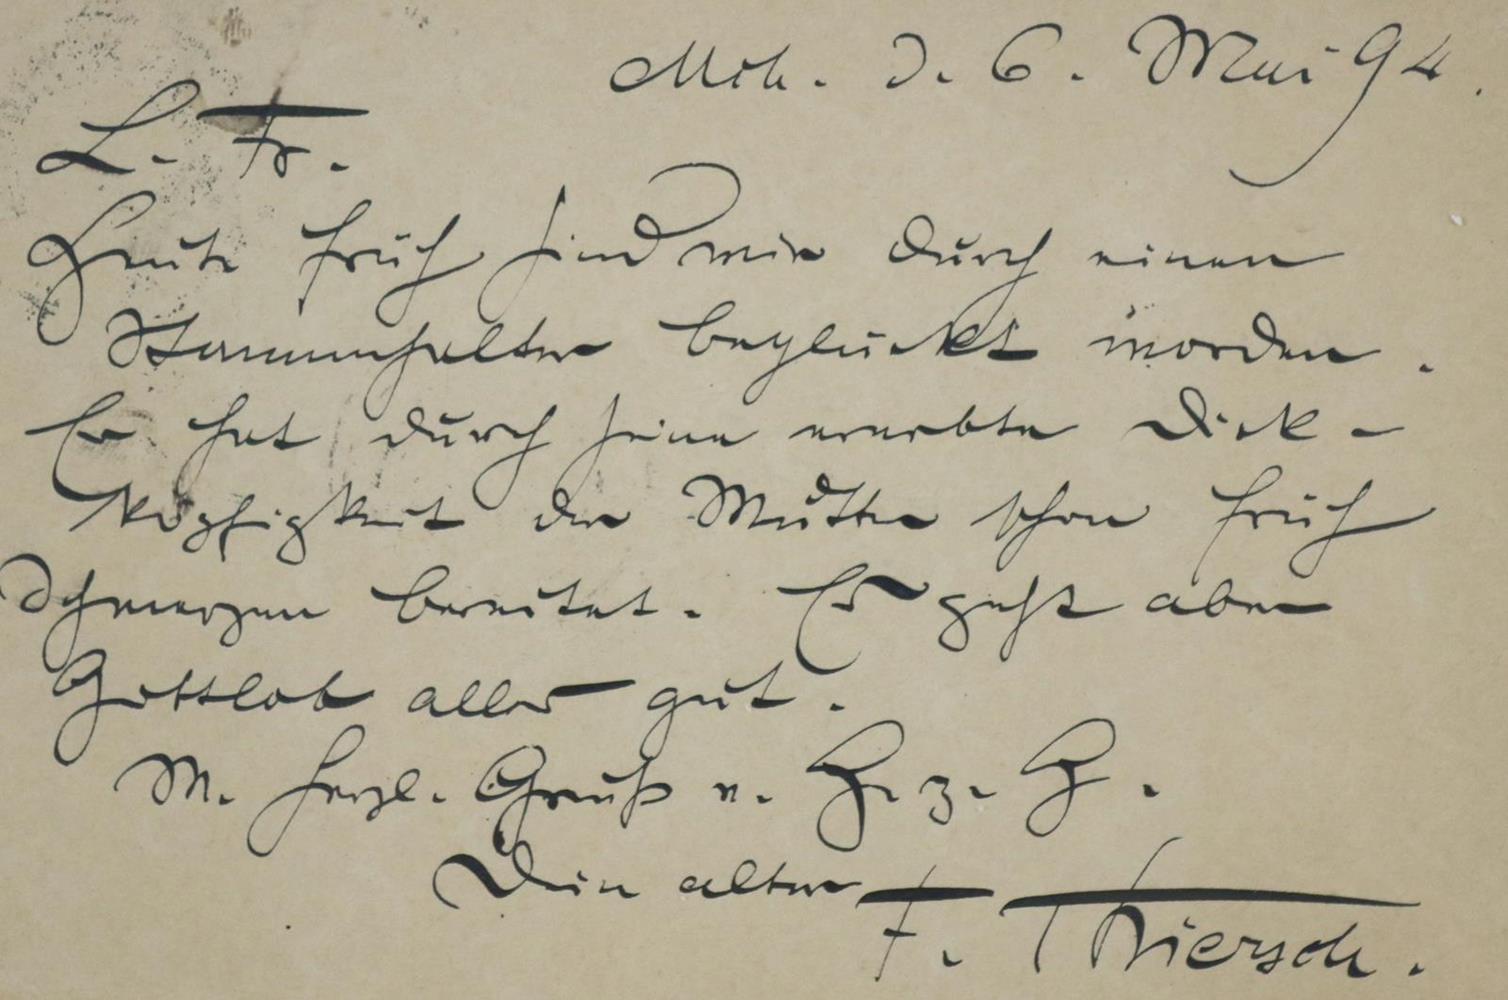 Mch. d. 6. Mai 94.
L. Fr.
Heute früh sind wir durch einen
Stammhalter beglückt worden.
Er hat durch seine ererbte Dick-
köpfigkeit der Mutter schon früh
Schmerzen bereitet. Er geht aber
Gottlob alles gut.
M. herzl. Gruß v. H. z. H.
Dein alter
F. Thiersch.